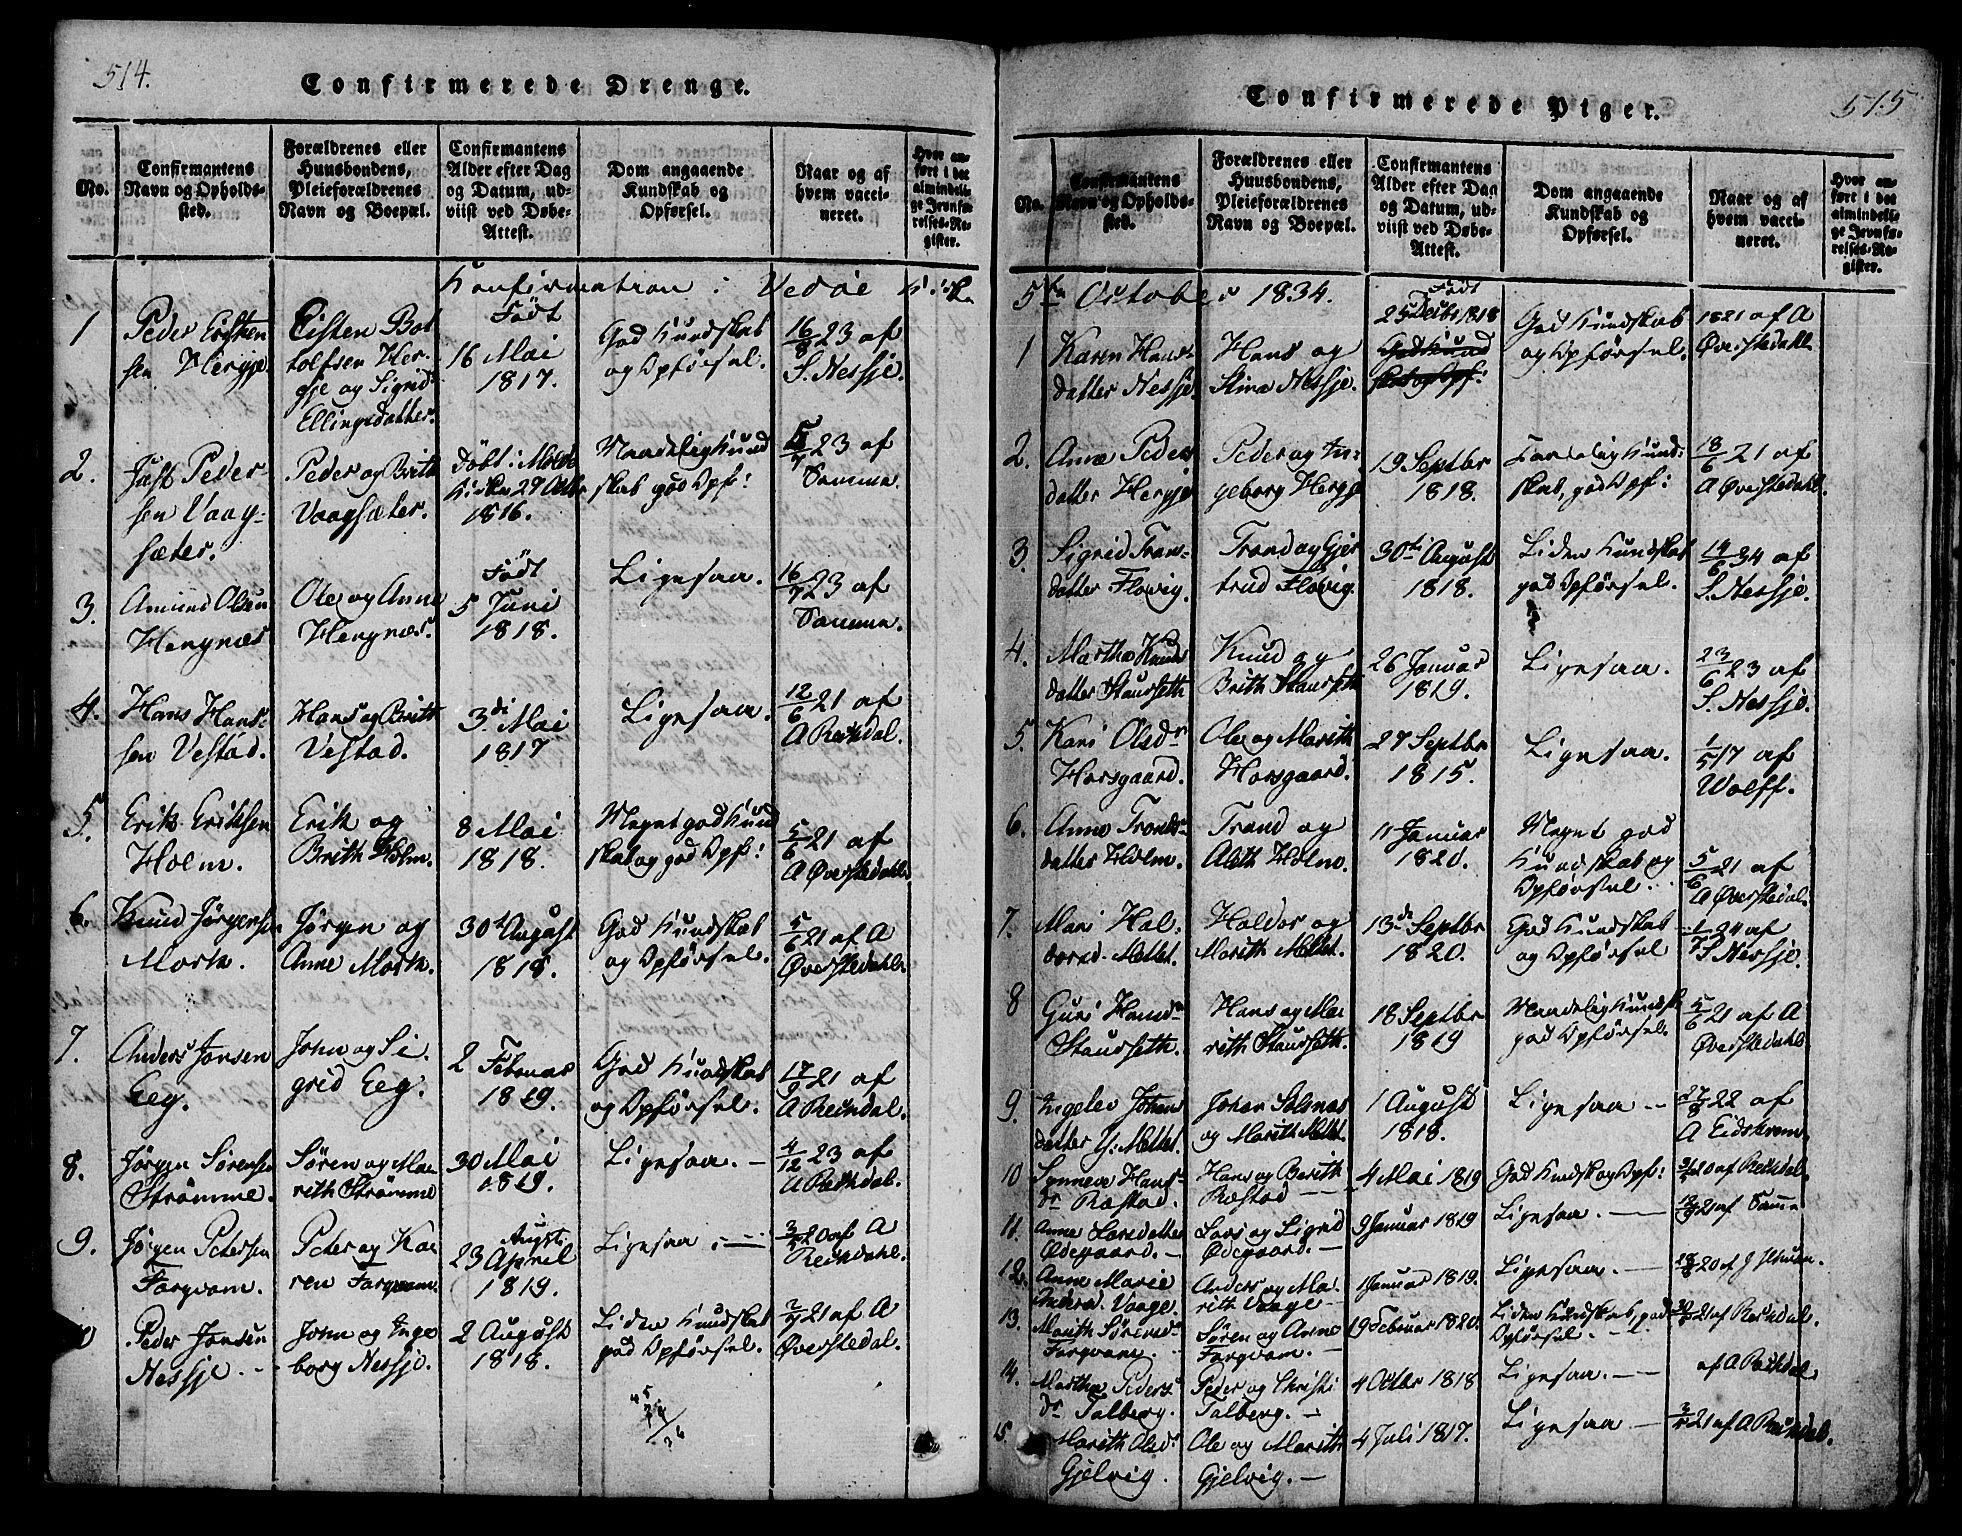 514.
Confirmerede Drenge.
No.
Confirmantens
Navn og Opholds-
sted.
Forældrenes eller
Huusbondens,
Pleieforældrenes
Navn og Boepæl.
Confirmantens
Alder efter Dag
og Datum, ud-
viist ved Døbe-
Attest.
Dom angaaende
Kundskab og
Opførsel.
Naar og af
hvem vacci-
neret.
Hvor an-
ført i det
almindeli-
ge Jevnfø-
relses-Re-
gister.
Konfirmation i Vedøe Kirke
1
Peder Eisten
sen Hergje
Eisten Bot
tolfsen Her-
gje og Sigrid
Ellingsdatter.
Født
16 Mai
1817.
God Kundskab
og Opførsel.
16/8 23 af
S. Nessje.
2.
Just Peder-
sen Vaag-
sæter.
Peder og Brith
Vaagsæter.
Døbt i Molde
Kirke 27 Octbr
1816.
Maadelig Kund
skab god Opf:
23 af
Samme.
3.
Amund Olsen
Hengnæs
Ole og Anne
Hengnæs.
Født
5 Juni
1818.
Ligesaa.
16/7 23 af
Samme.
4.
Hans Hans-
sen Vestad.
Hans og Britt
Vestad.
3di Mai
1817
Ligesaa.
12/6 21 af
A Rechdal.
5.
Erik Eriksen
Holm.
Erik og
Brith Holm.
8 Mai
1818.
Meget god Kund
skab og god Opf:
5/6 21 af
A Øverstedahl.
6.
Knud Jørgensen
Mork.
Jørgen og
Anne Mork.
30t August
1818.
God Kundskab
og Opførsel.
5/6 21 af A
Øverstedahl.
7.
Anders Jonsen
Eeg.
John og Si-
grid Eeg.
2 Februar
1819.
God Kundskab
og Opførsel.
17/9 21 af
A Rechdal.
8.
Jørgen Sørensen
Strømme.
Søren og Ma
rith Strømme
30 Mai
1819.
Ligesaa. —
4/12 23 af
A Rechdal.
9.
Jørgen Petersen
Fargvam.
Peter og Ka
ren Fargvam.
August
23 April
1819.
Ligesaa. —
20 af A
Rechdahl.
10
Peder Jonsen
Nessje. --
John og Inge
borg Nessje.
2 August
1818.
Liden Kundskab
god Opførsel.
21 af A
Øverstedal.
515
Confirmerede Piger.
No.
Confirmantens
Navn og Opholds-
sted.
Forældrenes eller
Huusbondens,
Pleieforældrenes
Navn og Boepæl.
Confirmantens
Alder efter Dag
og Datum, ud-
viist ved Døbe-
Attest.
Dom angaaende
Kundskab og
Opførsel.
Naar og af
hvem vacci-
neret.
Hvor an-
ført i det
almindeli-
ge Jevnfø-
relses-Re-
gister.
5te October 1834.
1
Karen Hans-
datter Nessje.
Hans og
Stina Nessje.
Født
25 Decbr 1818
God Kund
skab og Opf:
God Kundskab
og Opførsel.
1821 af A
Øverstedahl.
2.
Anne Peders
datter Hergje
Peder og In-
geborg Hergje
19 Septbr
1818.
Kundskab, god Opf:
18/6 21 af
A Øverstedahl.
3.
Sigrid Tron-
datter Flovig.
Trond og Gjer
trud Flovig.
30te August
1818.
Liden Kundskab
god Opførsel.
19/6 34 af
S. Nessje.
4.
Marthe Knuds
datter Staurseth
Knud og
Brith Staurseth
26 Januar
1819.
Ligesaa.
23/6 23 af
S. Nessje.
5.
Kari Olsdr
Horsgaard.
Ole og Marith
Horsgaard.
27 Septbr
1815.
Ligesaa.
1/5 17 af
Wolff.
6.
Anne Tronds-
datter Holm.
Trond og
Aleth Holm.
11 Januar
1820.
Meget god
Kundskab og
Opførsel.
5/6 21 af
A Øverstedal.
7.
Mari Hal-
dorsd. Mettet.
Haldor og
Marith Mettet.
13de Septbr
1820.
God Kundskab
og Opførsel
24 af
S Nessje.
8
Guri Hansdr
Staurseth.
Hans og Ma
rith Staurseth.
18 Septbr
1819
Maadelig Kundsk
god Opførsel.
5/6 21 af A
Øverstedahl.
9.
Ingelev Johan
datter Y: Mettet.
Johan Solsnæs
og Marith Mettet.
1 August
1818.
Ligesaa --
27/8 22 af
A Eidskrem.
10
Synneva Hans-
dr Ræstad.
Hans og Berith
Ræstad —
4 Mai 1819
God Kundsk og Opf:
20 af Rechdal.
11.
Anne Larsdatter
Ødegaard. —
Lars og Sigrid
Ødegaard. —
9 Januar 1819
Ligesaa. —
21 af Samme
12.
Anne Marie
Andersd. Vaage.
Anders og Ma-
rith Vaage —
1 Januar 1819.
Ligesaa. —
20 af
13.
Marith Sørensdr
Fargvam.
Søren og Anne
Fargvam. —
19 Februar 1820.
Liden Kundskab, god
Opførsel. --
21 af Rechdal.
14.
Marthe Peders-
dr Talberg.
Peder og Christi
Talberg. —
4 Octbr 1818
Ligesaa. --
af A Rechdal.
15.
Marith Olsdr
Gjelvig.
Ole og Marith
Gjelvig. —
4 Juli 1817.
Ligesaa —
21 af A Rechdal.